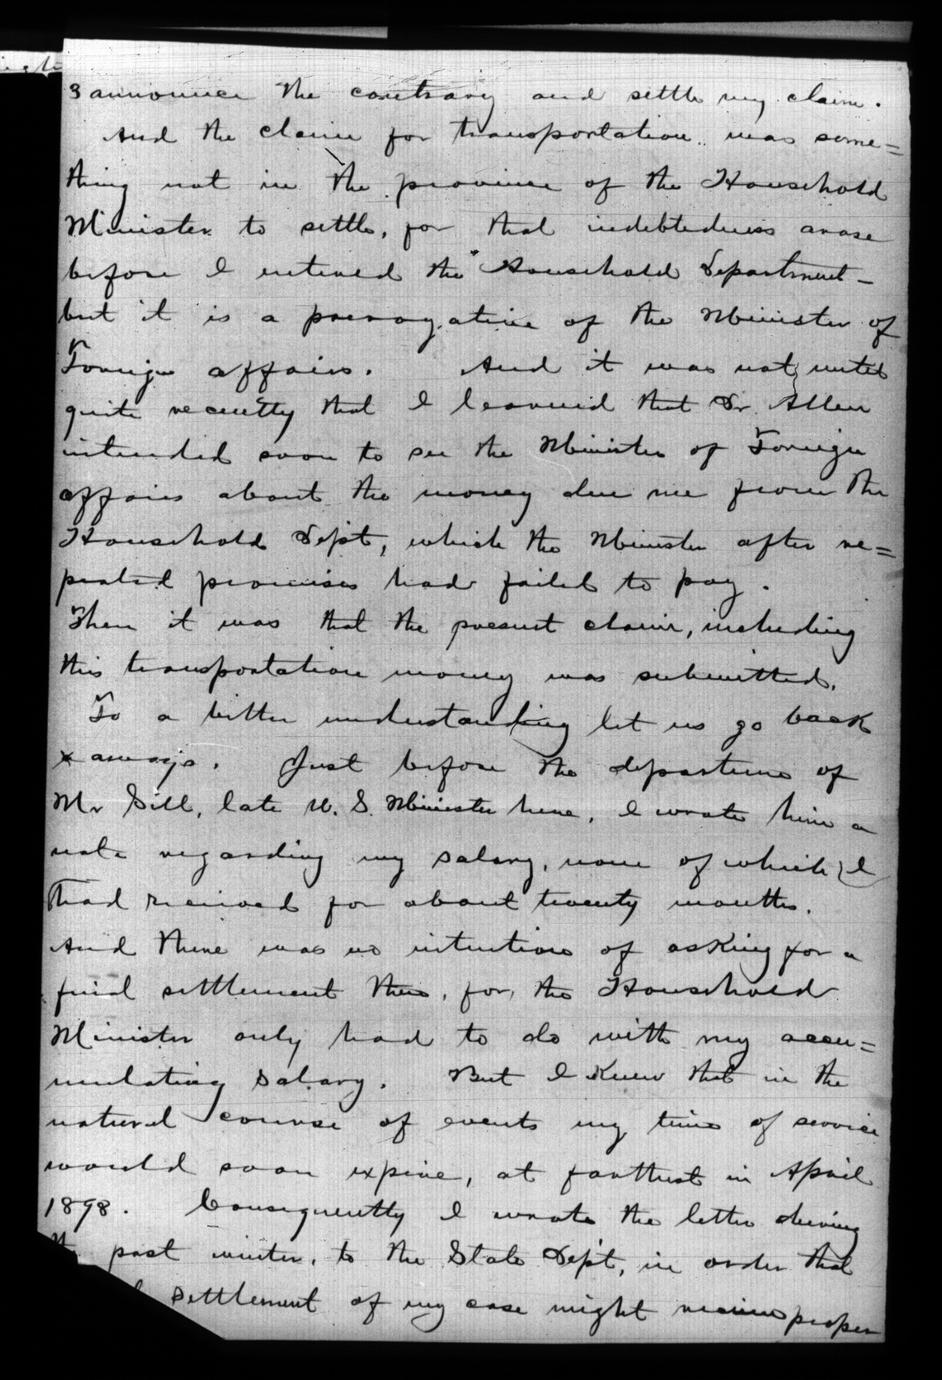 3 announce the contrary and settle my claim.
And the claim for transportation was some=
thing not in the province of the Household
Minister to settle, for that indebtedness arose
before I entered the Household Department—
but it is a prerogative of the Minister of
Foreign affairs. And it was not until
quite recently that I learned that Dr Allen
intended soon to see the Minister of Foreign
affairs about the money due me from the
Household Dept, which the Minister after re=
peated promises had failed to pay.
Then it was that the present claim, including
this transportation money was submitted.
To a better understanding let us go back
a ways. Just before the departure of
Mr Sill, late U. S. Minister here, I wrote him a
note regarding my salary, none of which I
had received for about twenty months.
And there was no intention of asking for a
final settlement then, for, the Household
Minister only had to do with my accu=
mulating salary. But I knew that in the
natural course of events my time of service
would soon expire, at farthest in April
1898. Consequently I wrote the letter during
the past winter, to the State Dept, in order that
settlement of my case might receive proper